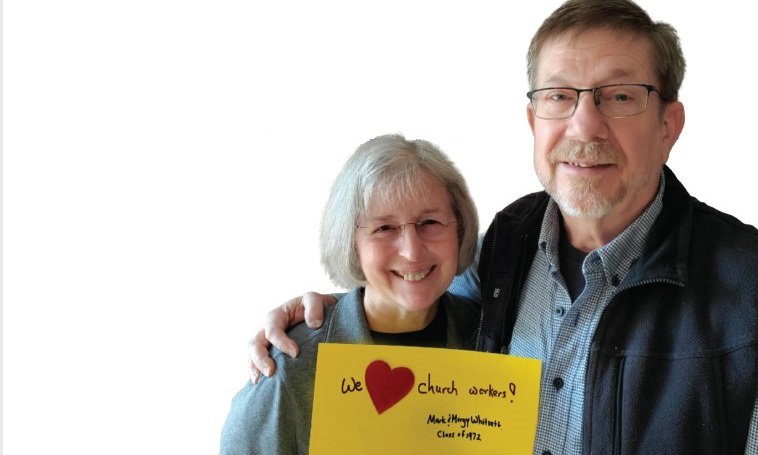 We ♥ church workers!
Mark & Margy Whitsett
Class of 1972